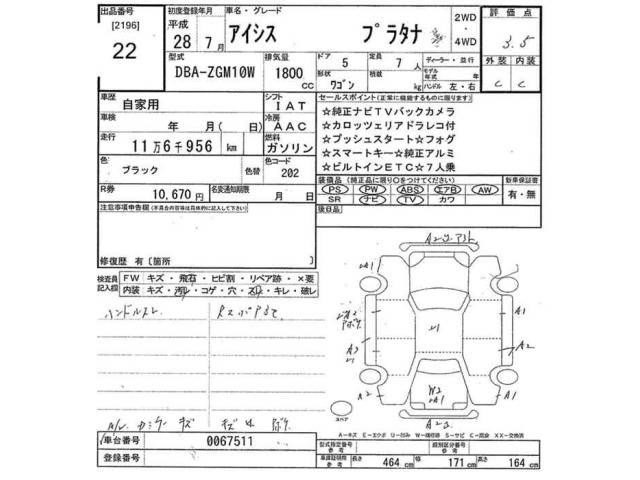 出品番号 初度登録年月 車名・グレード 2WD 評価点
[2196] 平成 アイシス プラタナ ・ 3.5
22 28年 7月 4WD
型式 排気量 ドア 5 定員 7人 ディーラー・並行 外装 内装
DBA-ZGM10W 1800 cc 形状 ワゴン 積載 kg モデル年式 年 ハンドル 左・右 C C
車歴 シフト セールスポイント(正常に機能するものに限ります)
自家用 IAT ☆純正ナビTVバックカメラ
車検 年 月(日) 冷房 AAC ☆カロッツェリアドラレコ付
走行 11万6千956 km 燃料 ガソリン ☆プッシュスタート☆フォグ
☆スマートキー☆純正アルミ
色 ブラック 色替 色コード 202 ☆ビルトインETC☆7人乗
装備品(純正品に限り○をつけてください) 新車保証書
R券 10,670円 名変通知期限 月 日 PS PW ABS エアB AW 有・無
SR ナビ TV カワ
注意事項申告欄(不具合内容は具体的に記入して下さい) 後日品
修復歴 有[箇所 ]
検査員記入欄 FW キズ・飛石・ヒビ割・リペア跡・×要
内装 キズ・汚レ・コゲ・穴・スレ・キレ・破レ
ハンドルスレ
A1 A1 A2 A3 U1 A2 A1 W2
スペア
A-キズ E-エクボ U-凹み W-補修跡 S-サビ C-腐食 XX-交換済
車台番号 0067511 型式指定番号 参考 類別区分番号 参考
登録番号 車庫証明用 参考 長さ 464cm 幅 171cm 高さ 164cm